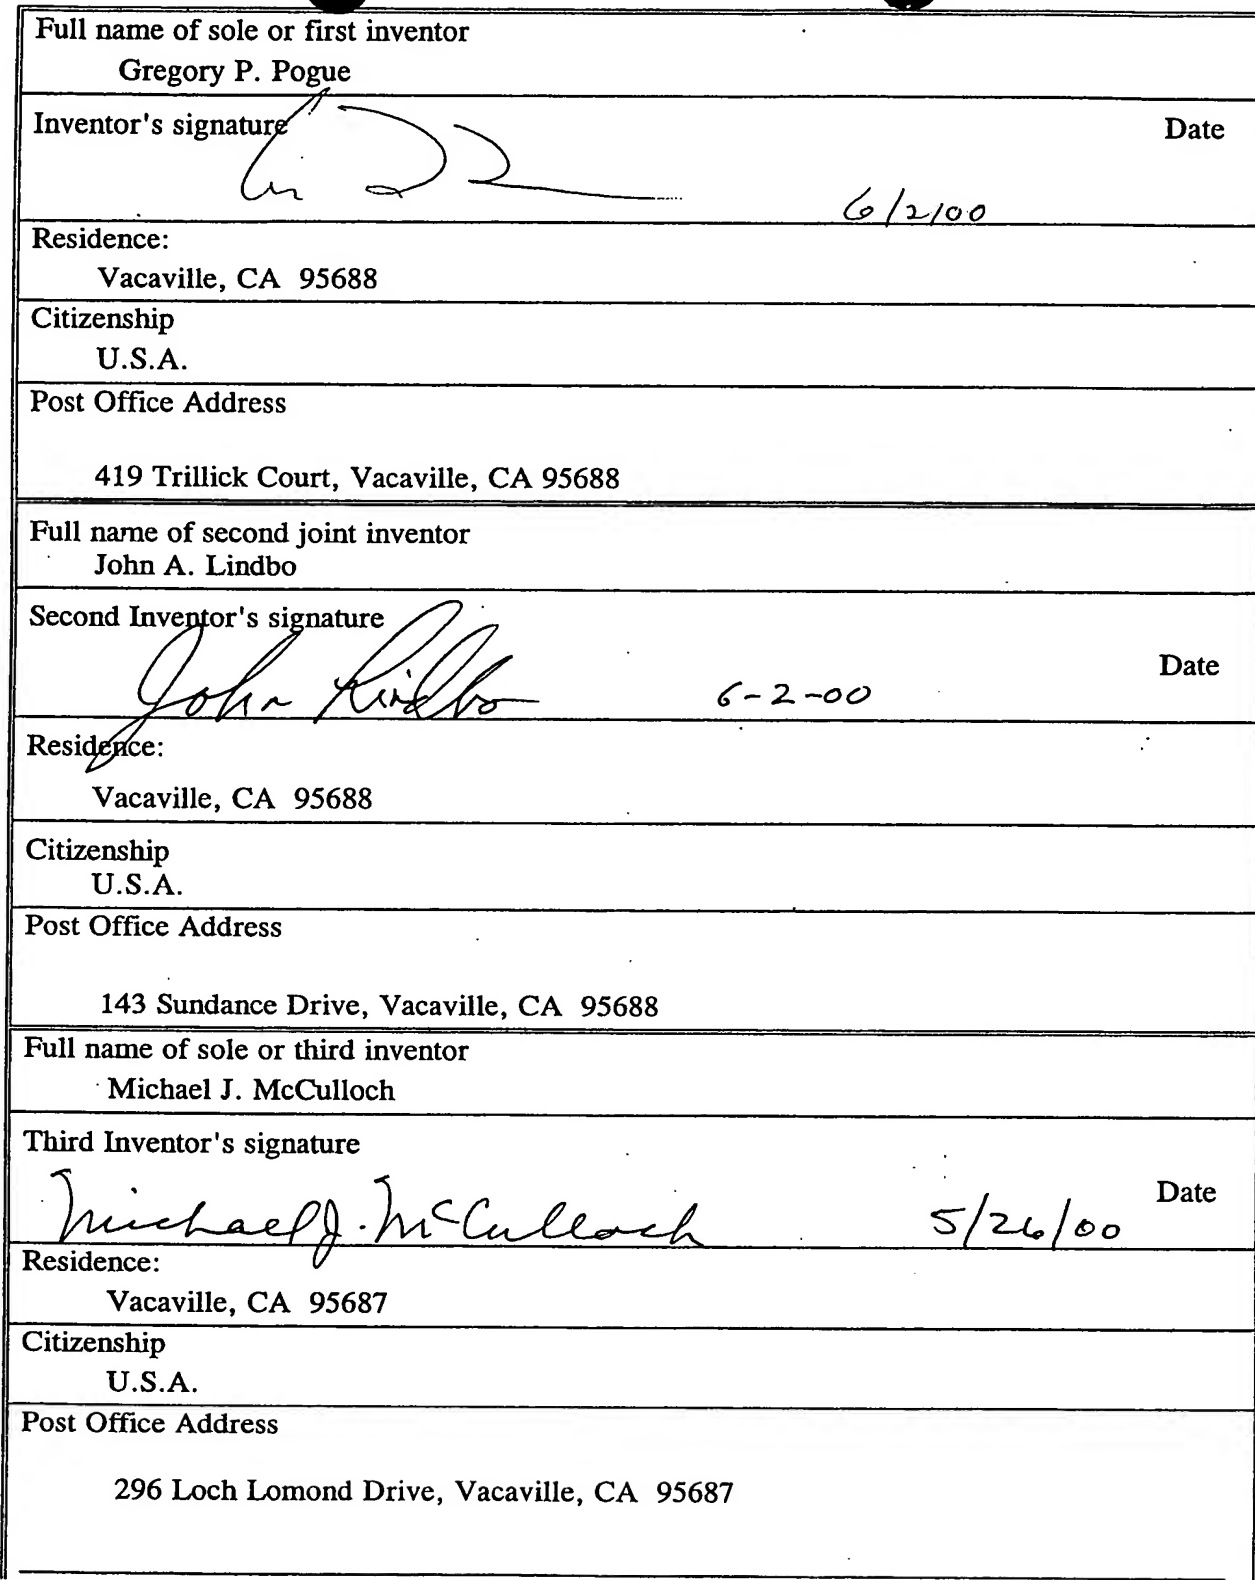 Full name of sole or first inventor
Gregory P. Pogue
Inventor's signature
Date
6/2/00
Residence:
Vacaville, CA 95688
Citizenship
U.S.A.
Post Office Address
419 Trillick Court, Vacaville, CA 95688
Full name of second joint inventor
John A. Lindbo
Second Inventor's signature
Date
John Lindbo 6-2-00
Residence:
Vacaville, CA 95688
Citizenship
U.S.A.
Post Office Address
143 Sundance Drive, Vacaville, CA 95688
Full name of sole or third inventor
Michael J. McCulloch
Third Inventor's signature
Date
Michael J. McCulloch 5/26/00
Residence:
Vacaville, CA 95687
Citizenship
U.S.A.
Post Office Address
296 Loch Lomond Drive, Vacaville, CA 95687